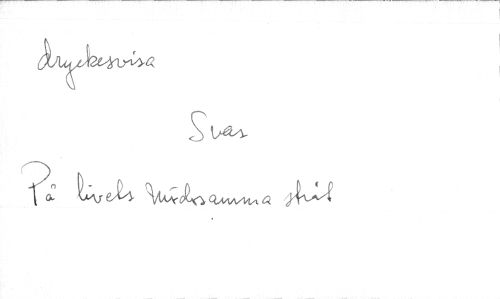 dryckesvisa
Svar
På livets mödosamma stråt